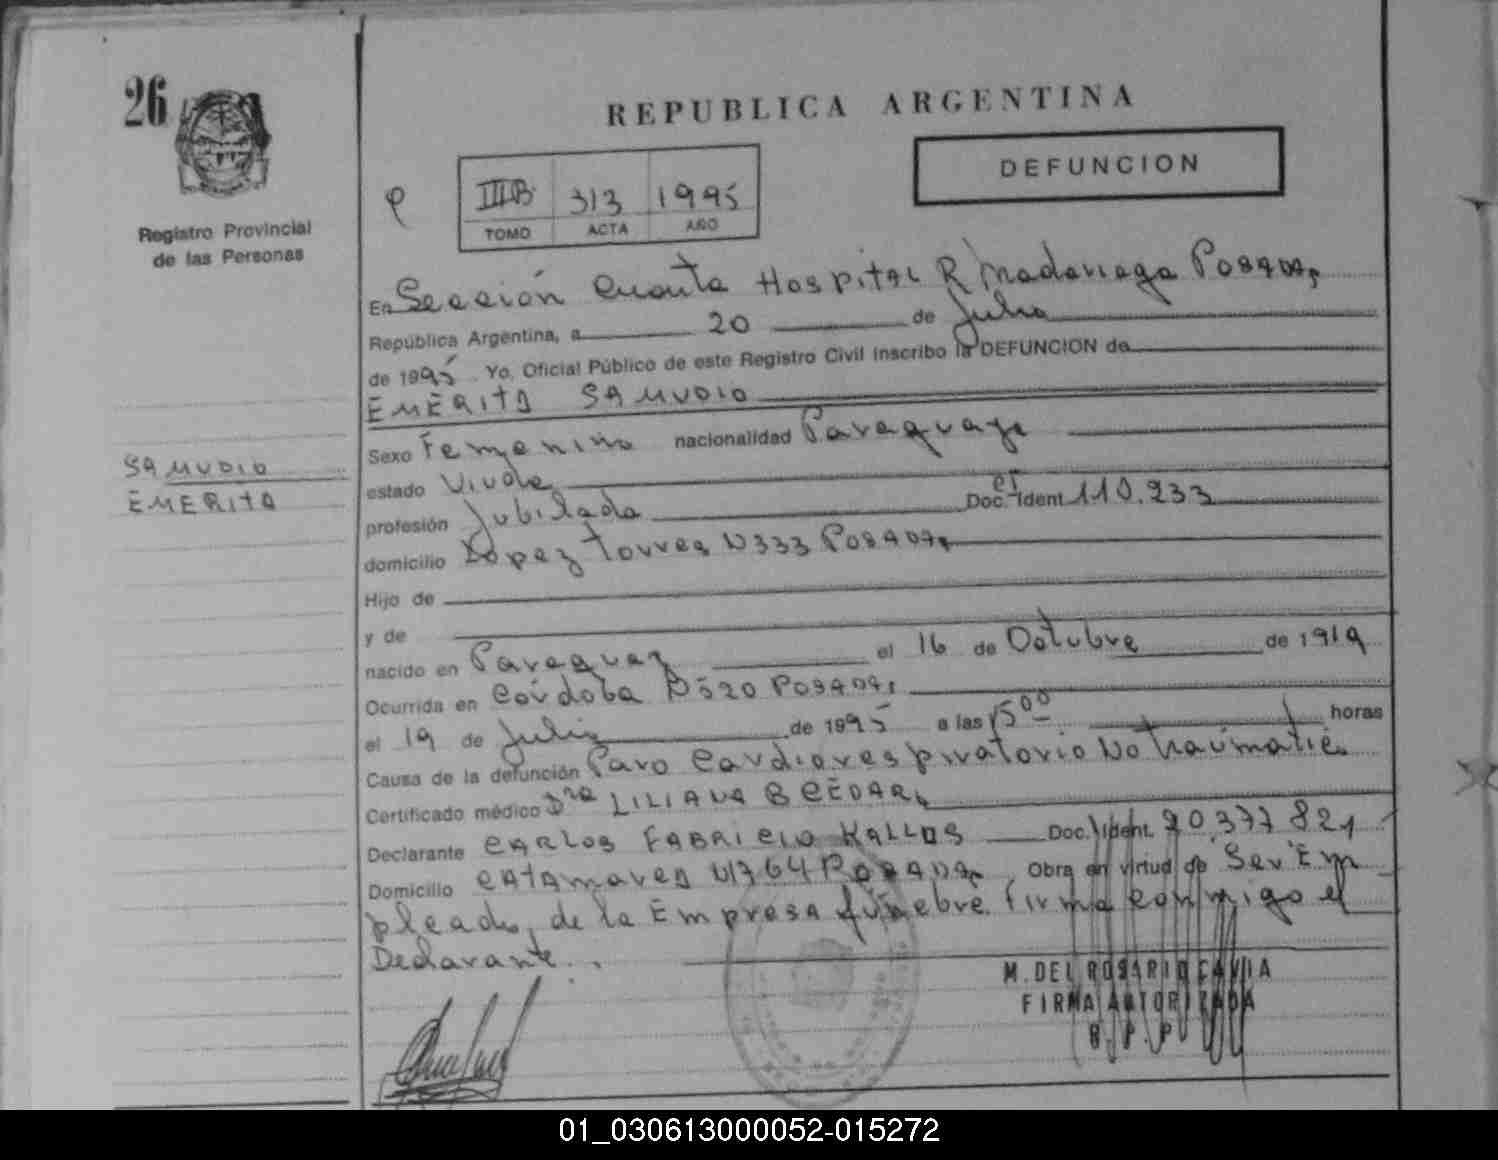 26
REPUBLICA ARGENTINA
DEFUNCION
IIIB 313 1995
TOMO ACTA AÑO
Registro Provincial
de las Personas
En Sección Cuarta Hospital R Madariaga Posadas
República Argentina, a 20 de Julio
de 1995 Yo, Oficial Público de este Registro Civil inscribo la DEFUNCION de
EMERITA SAMUDIO
SAMUDIO
EMERITA
Sexo Femenino nacionalidad Paraguaya
estado Viuda
profesión Jubilada Doc. Ident 110.233
domicilio López Torres N333 Posadas
Hijo de
y de
nacido en Paraguay el 16 de Octubre de 1919
Ocurrida en Córdoba Posadas
el 19 de Julio de 1995 a las 15 00 horas
Causa de la defunción Paro Cardiorespiratorio No traumatic
Certificado médico Dra LILIANA
Declarante CARLOS FABRICIO KALLUS Doc. Ident. 20.377 821
Domicilio Catamarca N1764 Posadas Obra en virtud de Ser Em
pleado de la Empresa fúnebre. firma conmigo el
Declarante.
M. DEL ROSARIO CAVIA
FIRMA AUTORIZADA
R. P. P
01_030613000052-015272